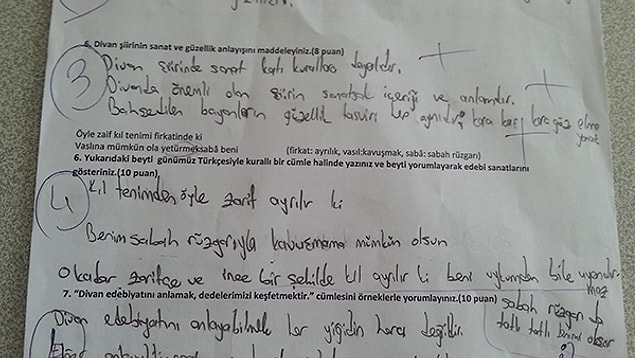 6. Divan şiirinin sanat ve güzellik anlayışını maddeleyiniz.(8 puan)
3
Divan şiirinde sanat katı kurallara dayalıdır.
Divanda önemli olan şiirin sanatsal içeriği ve anlamıdır.
Bahsedilen bayanların güzellik tasviri hep aynıdır, kara kaş kara göz elma yanak
Öyle zaif kıl tenimi firkatinde ki
Vaslına mümkün ola yetürmeksabâ beni (firkat: ayrılık, vasıl:kavuşmak, sabâ: sabah rüzgarı)
6. Yukarıdaki beyti günümüz Türkçesiyle kurallı bir cümle halinde yazınız ve beyti yorumlayarak edebi sanatlarını
gösteriniz.(10 puan)
4
Kıl tenimden öyle zarif ayrılır ki
Benim sabah rüzgarıyla kavuşmama mümkün olsun
O kadar zarifçe ve ince bir şekilde kıl ayrılır ki beni uykumdan bile uyandırmaz
7. "Divan edebiyatını anlamak, dedelerimizi keşfetmektir." cümlesini örneklerle yorumlayınız.(10 puan)
sabah rüzgarı da tatlı tatlı
Divan edebiyatını anlayabilmek her yiğidin harcı değildir.